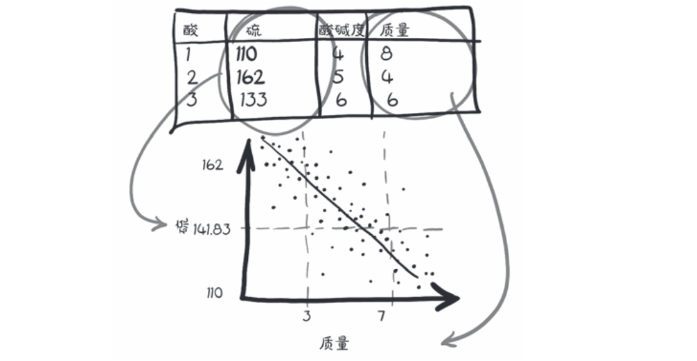 酸 硫 酸碱度 质量
1 110 4 8
2 162 5 4
3 133 6 6
162
141.83
110
3 7
质量